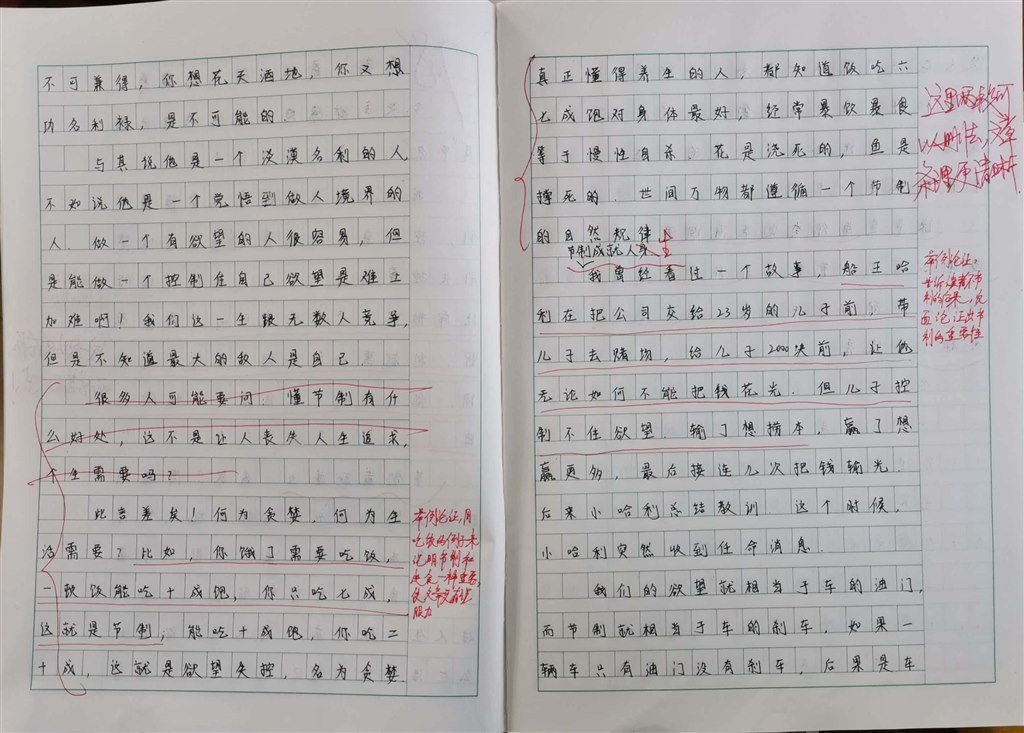 不可兼得，你想花天酒地，你又想
功名利禄，是不可能的.
与其说他是一个淡漠名利的人
不如说他是一个觉悟到做人境界的
人.做一个有欲望的人很容易，但
是能做一个控制住自己欲望是难上
加难啊！我们这一生跟无数人竞争，
但是不知道最大的敌人是自己.
很多人可能要问：懂节制有什
么好处，这不是让人丧失人生追求，
个生需要吗？
此言差矣！何为贪婪，何为生
活需要？比如，你饿了需要吃饭，
一顿饭能吃十成饱，你只吃七成，
这就是节制，能吃十成饱，你吃二
十成，这就是欲望失控，名为贪婪.
举例论证，用
吃饭的例子来
说明节制和
服力
真正懂得养生的人，都知道饭吃六
七成饱对身体最好，经常暴饮暴食
等于慢性自杀.花是浇死的，鱼是
撑死的.世间万物都遵循一个节制
的自然规律.
这里两段可
以删去，文章
条理更清晰
节制成就人生
我曾经看过一个故事，船王哈
利在把公司交给23岁的儿子前，带
儿子去赌场，给儿子2000块前，让他
无论如何不能把钱花光.但儿子控
制不住欲望.输了想捞本，赢了想
赢更多，最后接连几次把钱输光.
后来小哈利总结教训.这个时候，
小哈利突然收到任命消息.
举例论证，
制的后果，反
面论证出节
制的重要性
我们的欲望就相当于车的油门，
而节制就相当于车的刹车，如果一
辆车只有油门没有刹车，后果是车